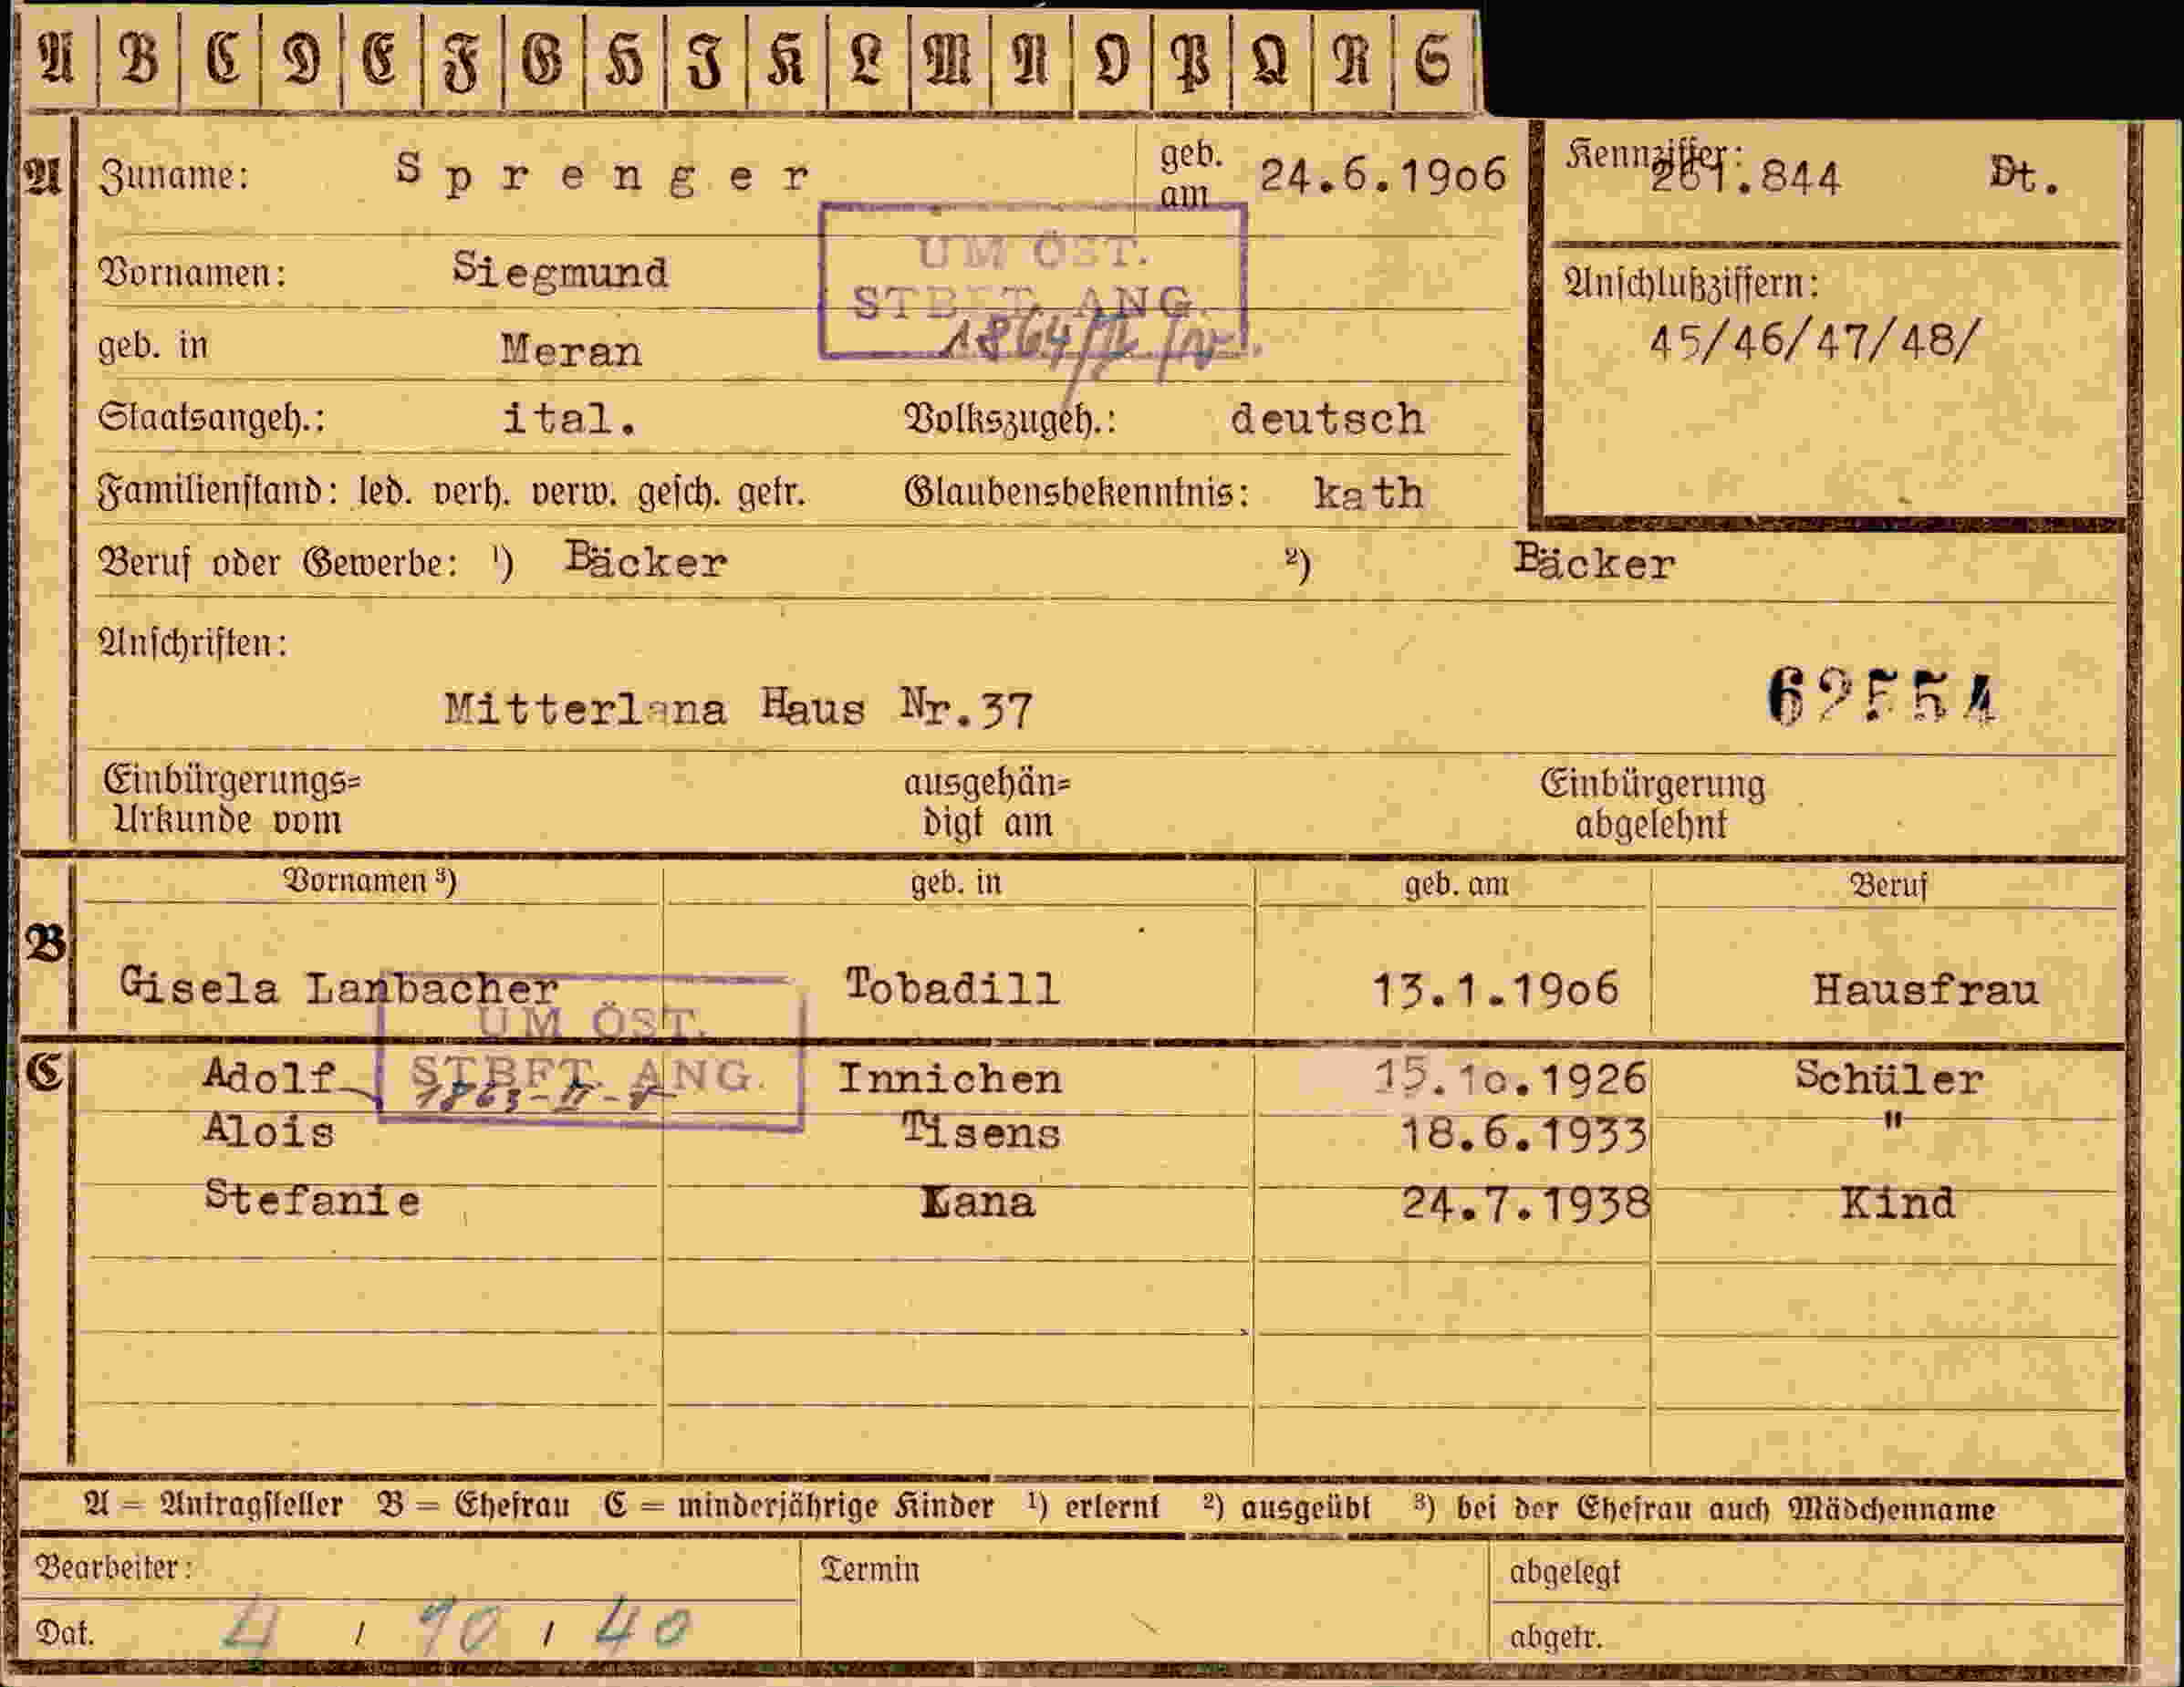 A B C D E F G H I K L M N O P Q R S
A Zuname: Sprenger geb. am 24.6.1906 Kennziffer: 261.844 Dt.
UM ÖST.
Vornamen: Siegmund Anschlußziffern:
STBFT. ANG.
45/46/47/48/
geb. in Meran
Staatsangeh.: ital. Volkszugeh.: deutsch
Familienstand: led. verh. verw. gesch. getr. Glaubensbekenntnis: kath
Beruf oder Gewerbe: ¹) Bäcker ²) Bäcker
Anschriften:
Mitterlana Haus Nr.37 62554
Einbürgerungs= ausgehän= Einbürgerung
Urkunde vom digt am abgelehnt
Vornamen ³) geb. in geb. am Beruf
B
Gisela Lanbacher Tobadill 13.1.1906 Hausfrau
UM ÖST.
C Adolf Innichen 15.10.1926 Schüler
STBFT. ANG.
Alois Tisens 18.6.1933 "
Stefanie Lana 24.7.1938 Kind
A = Antragsteller B = Ehefrau C = minderjährige Kinder ¹) erlernt ²) ausgeübt ³) bei der Ehefrau auch Mädchenname
Bearbeiter: Termin abgelegt
Dat. 4 / 10 / 40 abgetr.